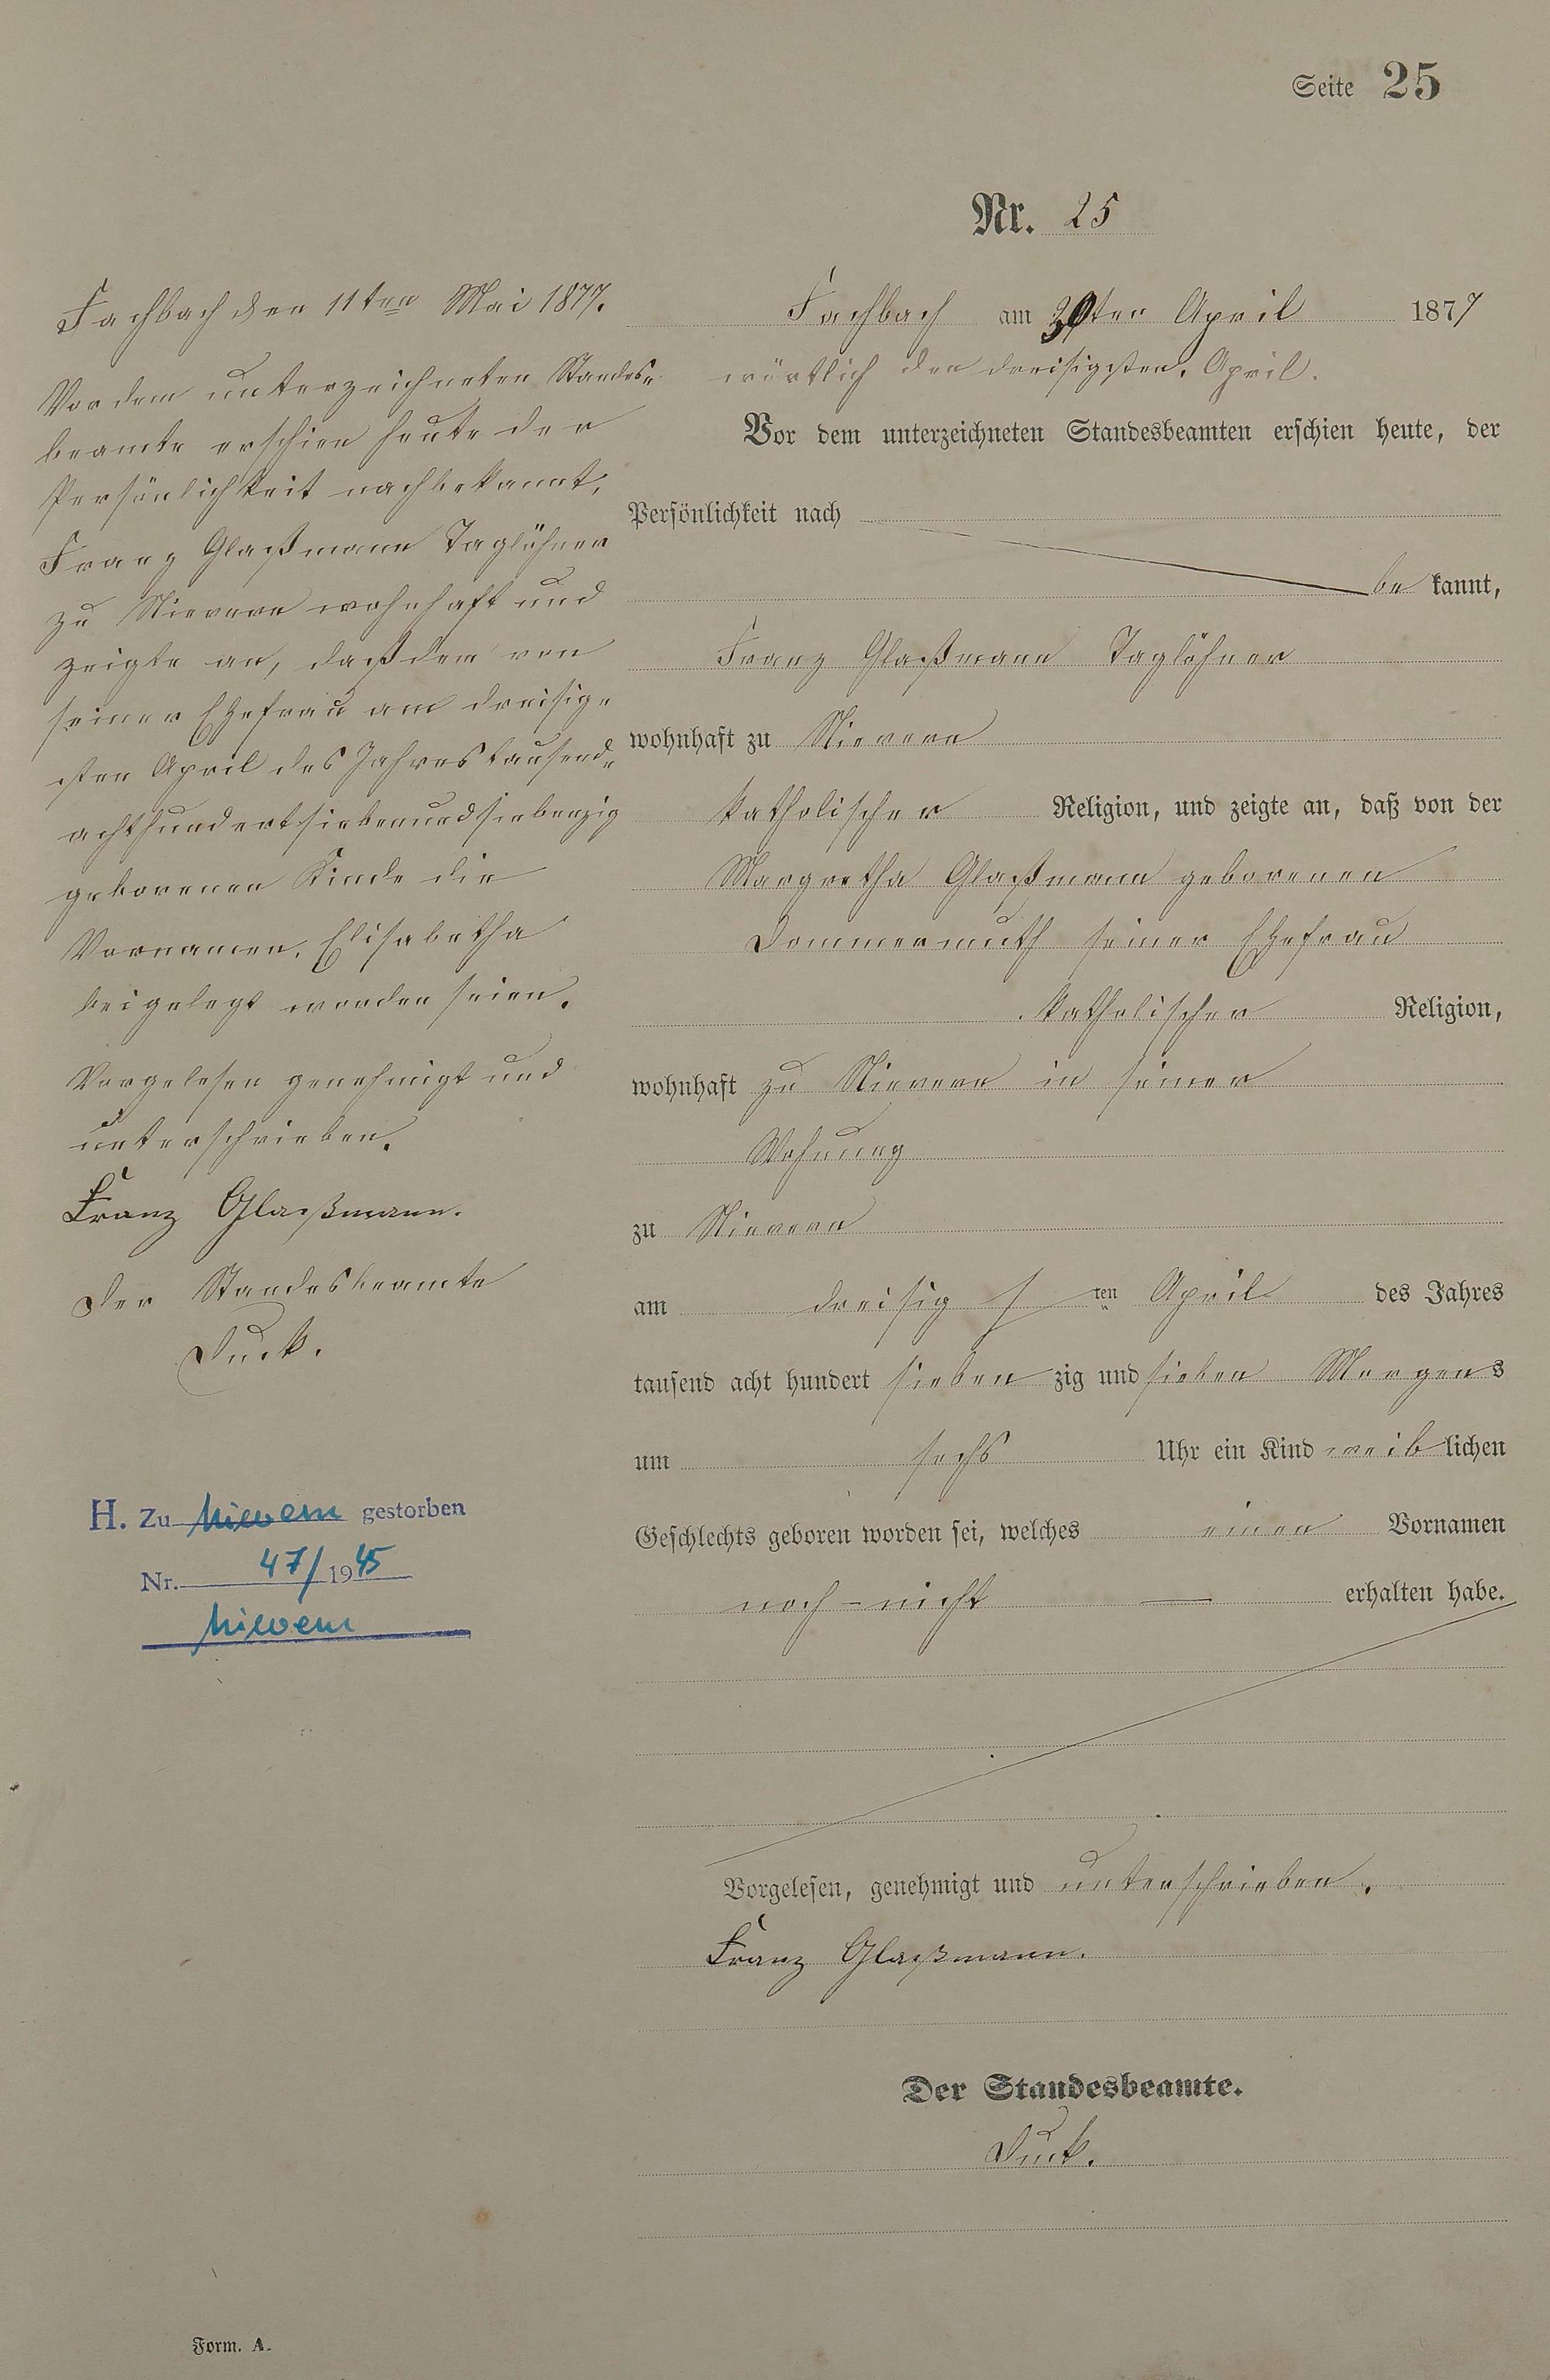 Seite 25
Nr. 25
Fachbach am 30ten April 1877
wörtlich den dreisigsten. April.
Vor dem unterzeichneten Standesbeamten erschien heute, der
Persönlichkeit nach
be kannt,
Franz Glaßmann Taglöhner
wohnhaft zu Nievern
katholischer Religion, und zeigte an, daß von der
Margretha Glaßmann geborenen
Dommermuth seiner Ehefrau
katholischer Religion,
wohnhaft zu Nievern in seiner
Wohnung
zu Nievern
am dreisigsten April des Jahres
tausend acht hundert sieben zig und sieben Morgens
um sechs Uhr ein Kind weiblichen
Geschlechts geboren worden sei, welches einen Vornamen
noch - nicht — erhalten habe.
Vorgelesen, genehmigt und unterschrieben.
Franz Glaßmann.
Der Standesbeamte.
Duck.
Fachbach den 11ten Mai 1877.
Vor dem unterzeichneten Standes-
beamte erschien heute der
Persönlichkeit nach bekannt,
Franz Glaßmann Taglöhner
zu Nievern wohnhaft und
zeigte an, daß dem von
seiner Ehefrau am dreisig-
sten April des Jahres tausend-
achthundertsiebenundsiebenzig
geborenen Kinde die
Vornamen, Elisabetha
beigelegt worden seien.
Vorgelesen genehmigt und
unterschrieben.
Franz Glaßmann.
Der Standesbeamte
Duck.
H. Zu Nievern gestorben
Nr. 47/1945
Nievern
Form. A.